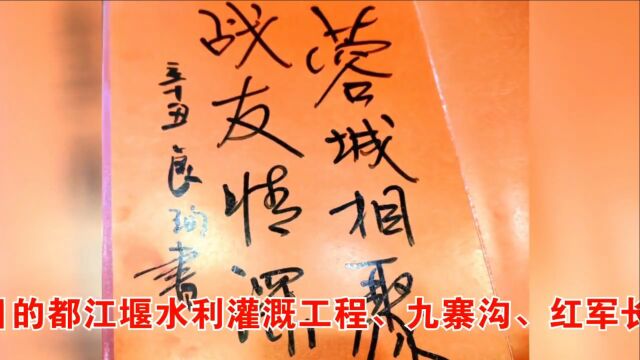 蓉城相聚
战友情深
辛丑良珣書
的都江堰水利灌溉工程、九寨沟、红军长